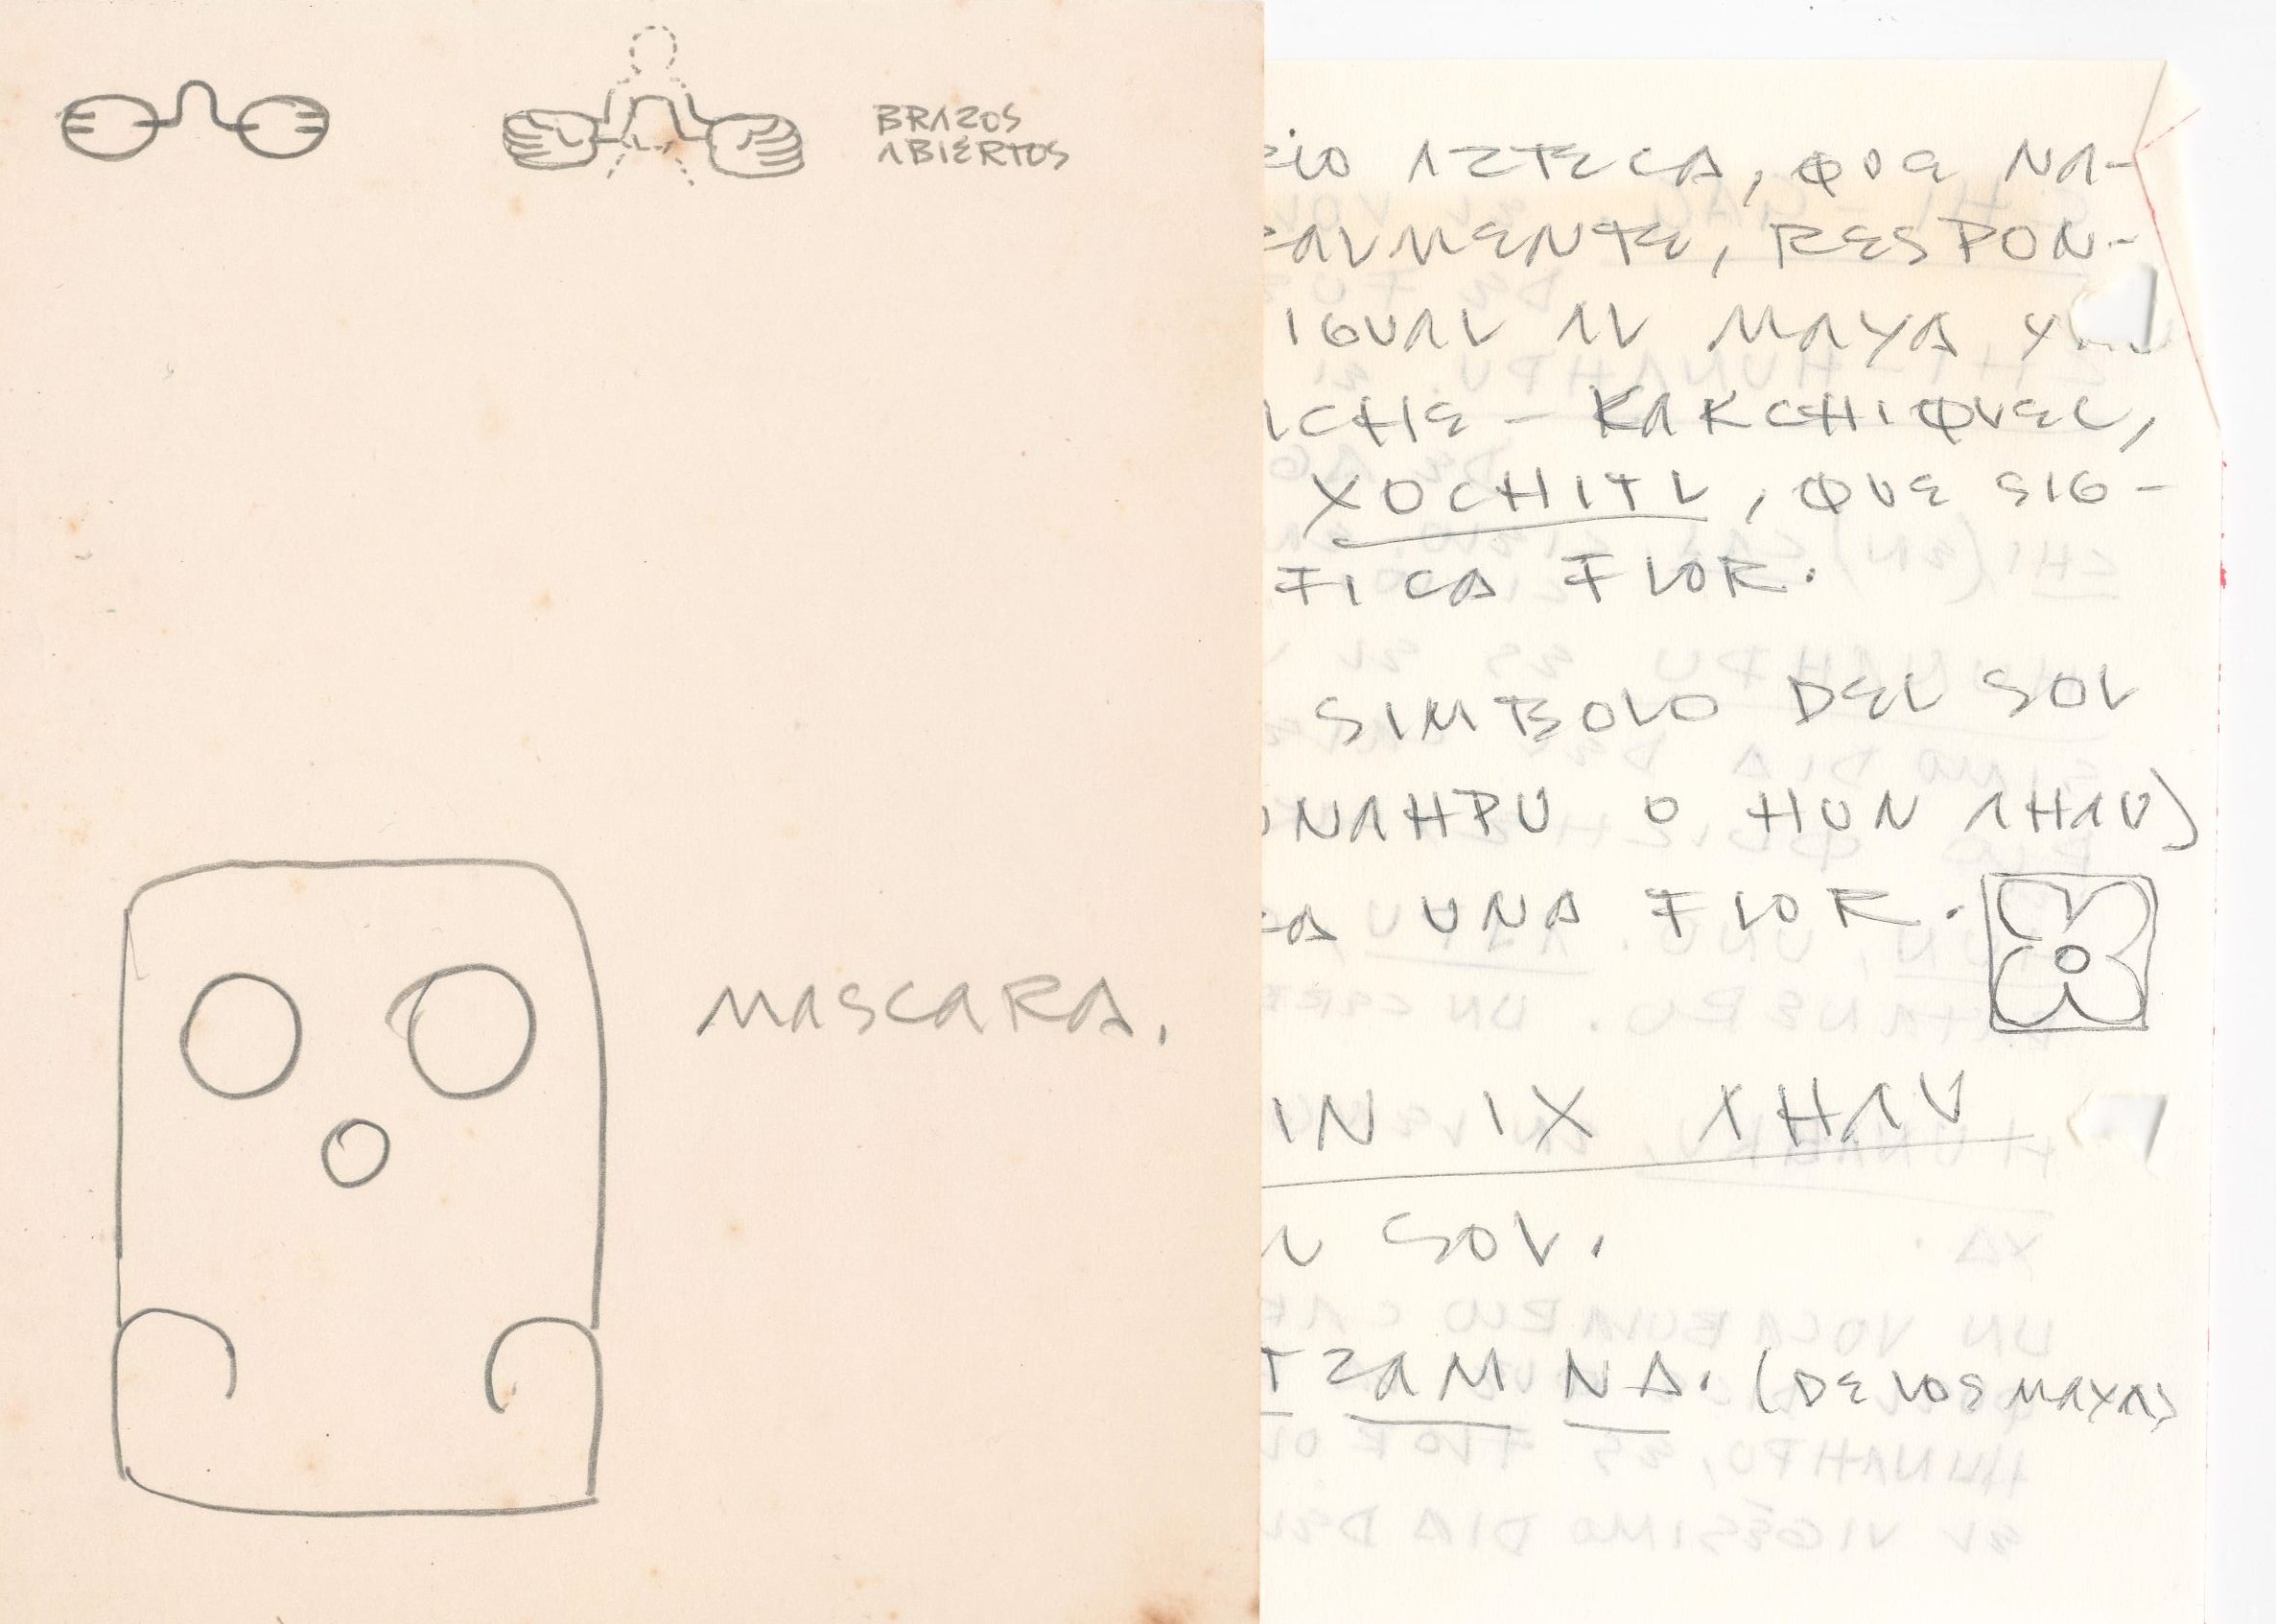 BRAZOS
ABIERTOS
MASCARA.
AZTECA, QUE NA-
ALMENTE, RESPON-
IGUAL AL MAYA Y
ICHE - KAKCHIQUEL,
XOCHITL, QUE SIG-
FICA FLOR.
SIMBOLO DEL SOL
UNAHPU O HUN AHAU)
UNA FLOR.
IN IX AHAU
SOL.
TZAM NA. (DE LOS MAYAS)